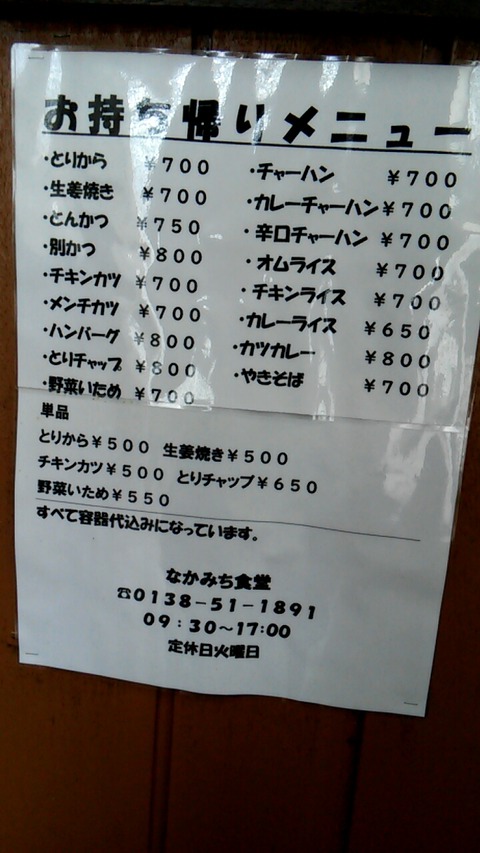 お持ち帰りメニュー
・とりから ￥７００
・生姜焼き ￥７００
・とんかつ ￥７５０
・別かつ ￥８００
・チキンカツ ￥７００
・メンチカツ ￥７００
・ハンバーグ ￥８００
・とりチャップ ￥８００
・野菜いため ￥７００
・チャーハン ￥７００
・カレーチャーハン￥７００
・辛口チャーハン ￥７００
・オムライス ￥７００
・チキンライス ￥７００
・カレーライス ￥６５０
・カツカレー ￥８００
・やきそば ￥７００
単品
とりから￥５００ 生姜焼き￥５００
チキンカツ￥５００ とりチャップ￥６５０
野菜いため￥５５０
すべて容器代込みになっています。
なかみち食堂
☎０１３８－５１－１８９１
０９：３０～１７:００
定休日火曜日